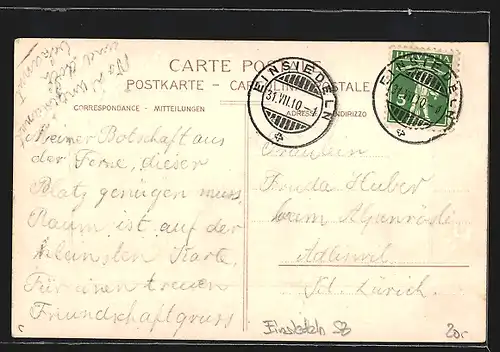 CARTE POSTALE
POSTKARTE - CARTOLINA POSTALE
CORRESPONDANCE - MITTEILUNGEN
ADRESSE INDIRIZZO
EINSIEDELN
31.VII.10
HELVETIA
5
EINSIEDELN
31.VII.10
Meiner Botschaft aus
der Ferne, dieser
Platz genügen muss,
Raum ist auf der
kleinsten Karte,
Für einen treuen
Freundschaftgruss
Fräulein
Frieda Huber
beim
Adliswil
Kt. Zürich.
Einsiedeln SZ
20.-